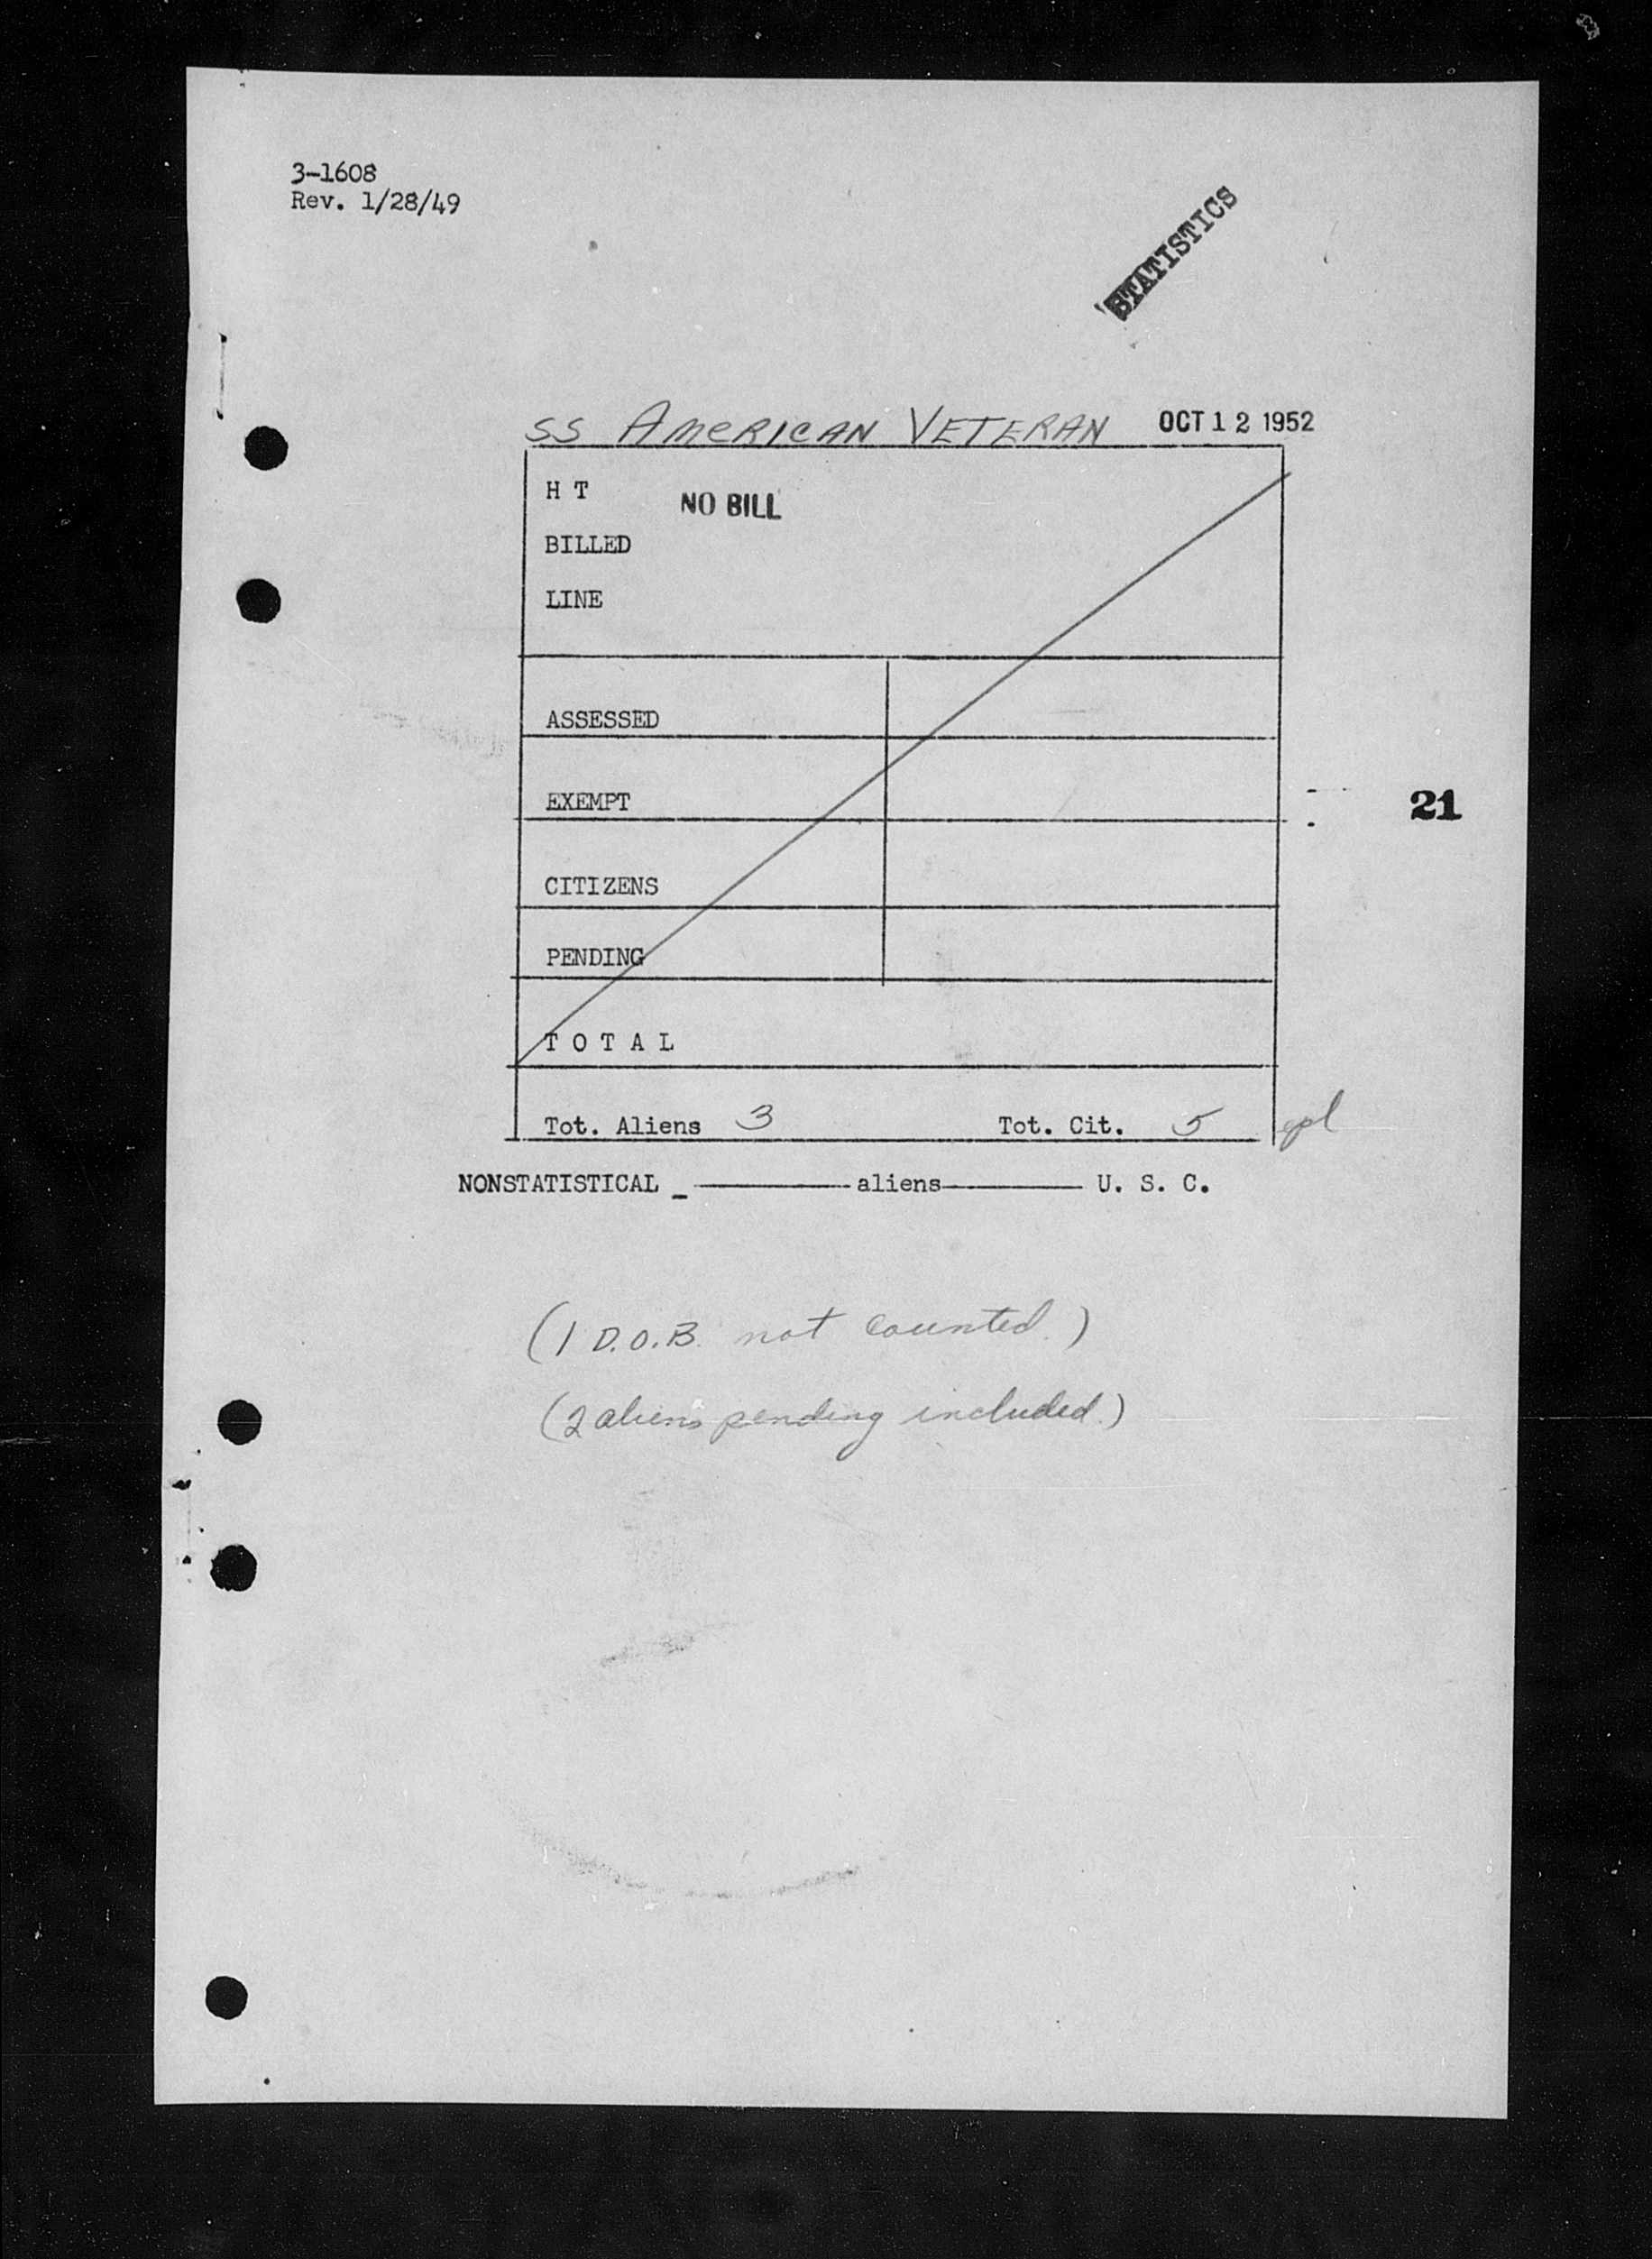 3-1608
Rev. 1/28/49
STATISTICS
SS AMERICAN VETERAN OCT 12 1952
H T NO BILL
BILLED
LINE
ASSESSED
EXEMPT
21
CITIZENS
PENDING
T O T A L
Tot. Aliens 3 Tot. Cit. 5
NONSTATISTICAL _ aliens U. S. C.
(1 D.O.B. not counted.)
(2 aliens pending included.)